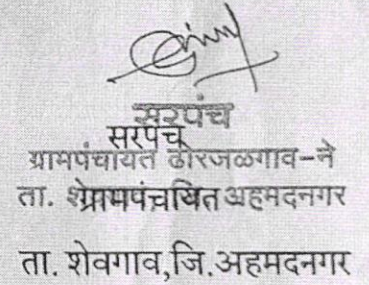 सरपंच
सरपंच
ग्रामपंचायत ढोरजळगाव-ने
ता. ग्रामपंचायित अहमदनगर
ता. शेवगाव,जि.अहमदनगर